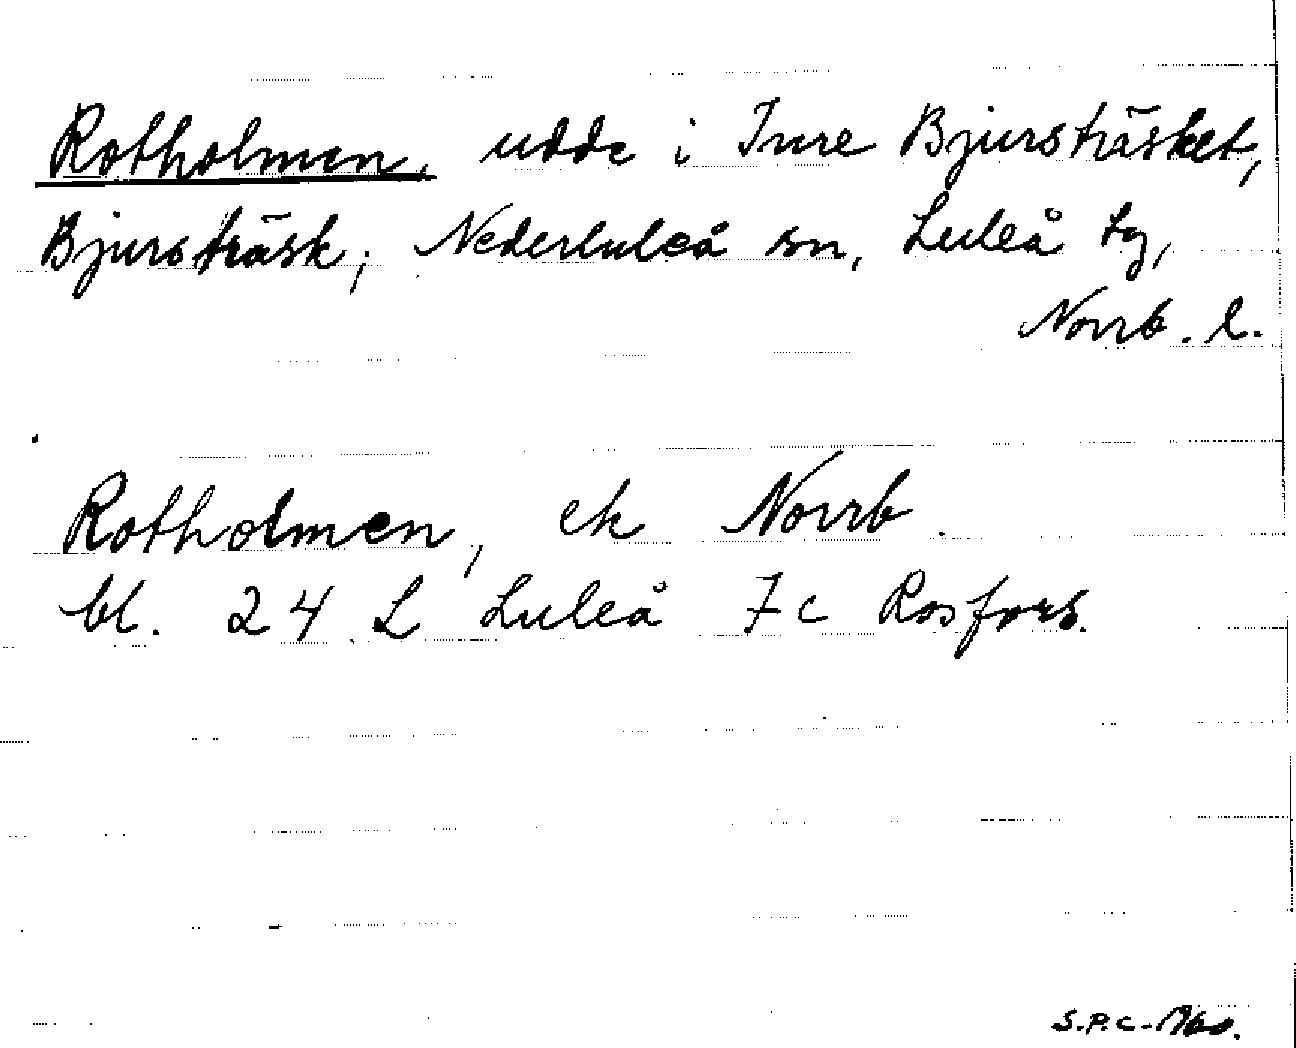 Rotholmen, udde i Inre Bjursträsket,
Bjursträsk, Nederluleå sn, Luleå tg,
Norrb. l.
Rotholmen, ek Norrb.
bl. 24 L Luleå 7c Rosfors.
S.P.C. 1960.